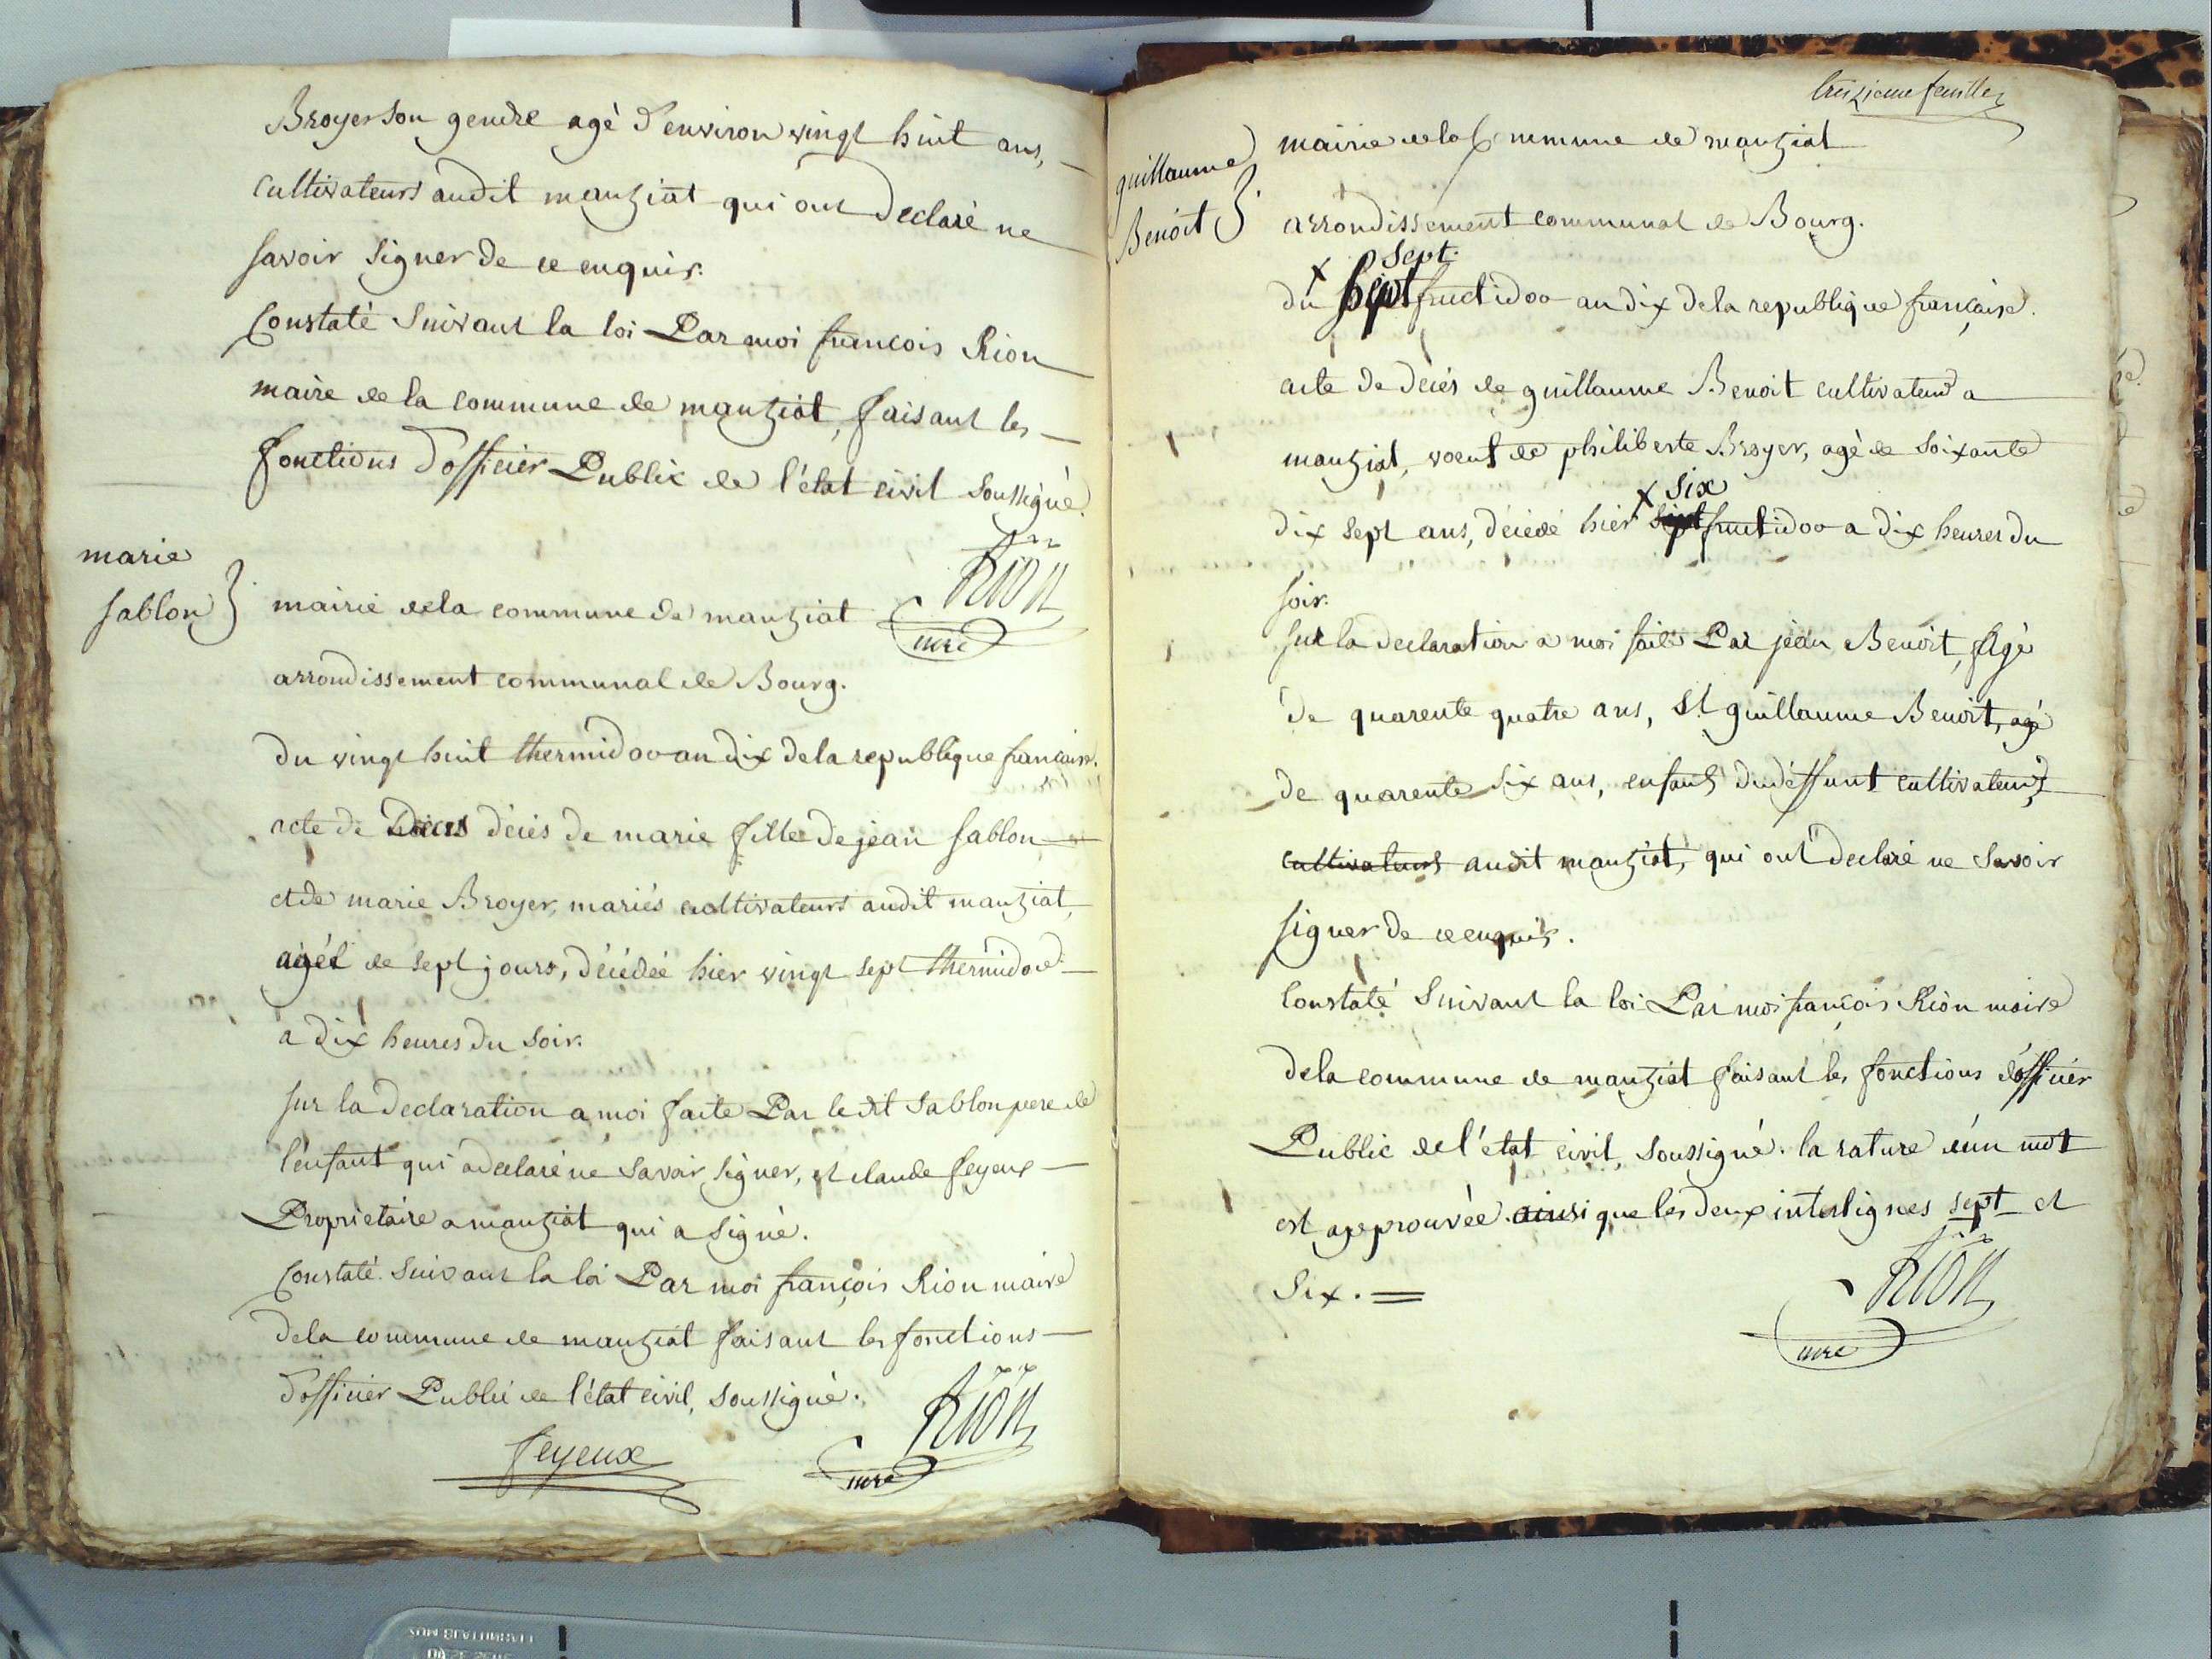 Broyer son gendre agè d'environ vingt huit ans,
cultivateurs audit manziat qui ont declaré ne
savoir signer de ce enquis.
Constaté suivant la loi Par moi francois Rion
maire de la commune de manziat, faisant les
fonctions d'officier Public de l'état civil soussigné.
Rion
mre
marie
sablon
mairie de la commune de manziat
arrondissement communal de Bourg.
du vingt huit thermidor an dix de la republique francaise.
acte de décés de marie fille de jean sablon
et de marie Broyer, mariés cultivateurs audit manziat,
agée de sept jours, décédée hier vingt sept thermidor
a dix heures du soir.
sur la declaration a moi faite Par ledit sablon pere de
l'enfant qui a declaré ne savoir signer, et claude feyeux
Proprietaire a manziat qui a signé.
Constaté suivant la loi Par moi françois Rion maire
de la commune de manziat faisant les fonctions
d'officier Public de l'état civil, soussigné.
feyeux
Rion
mre
treizieme feuille
guillaume
Benoit
mairie de la Commune de manziat
arrondissement communal de Bourg.
sept.
du sept fructidor an dix de la republique française.
acte de décés de guillaume Benoit cultivateur a
manziat, voeuf de philiberte Broyer, agè de soixante
six
dix sept ans, décédé hier sept fructidor a dix heures du
soir.
sur la declaration a moi faite Par jean Benoit, Agé
de quarente quatre ans, et guillaume Benoit, agé
de quarente six ans, enfants du deffunt cultivateurs
cultivateurs audit manziat, qui ont declaré ne savoir
signer de ce enquis.
Constaté suivant la loi Par moi françois Rion maire
de la commune de manziat faisant les fonctions d'officier
Public de l'état civil, soussigné. la rature d'un mot
est approuvée. ainsi que les deux interlignes sept et
six.
Rion
mre